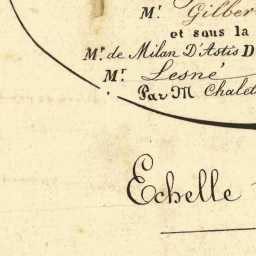 Mr. Gilber
et sous la
Mr. de Milan D'Astis D
Mr. Lesné
Par M Chalet
Echelle